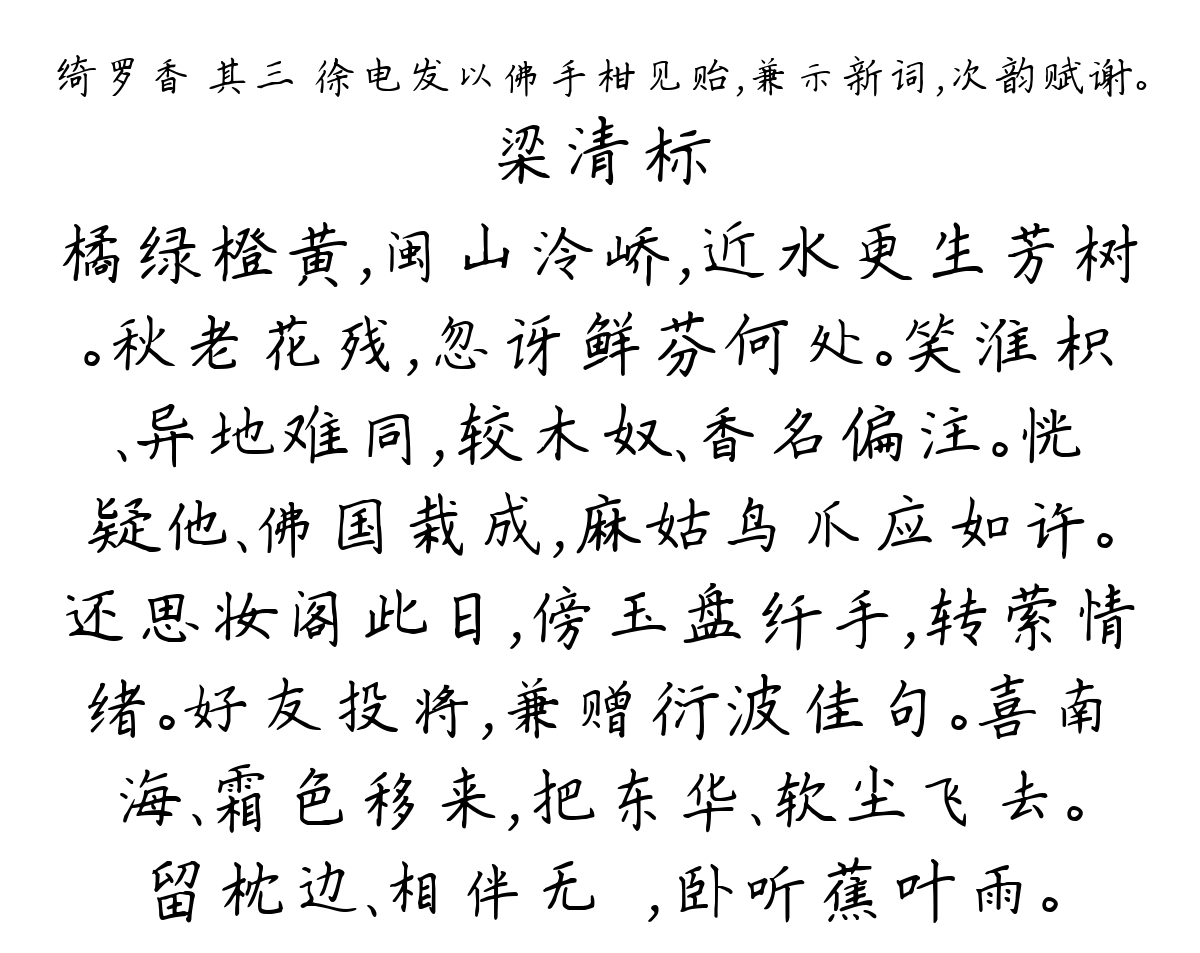 绮罗香 其三 徐电发以佛手柑见贻,兼示新词,次韵赋谢。
梁清标
橘绿橙黄,闽山泠峤,近水更生芳树
。秋老花残,忽讶鲜芬何处。笑淮枳
、异地难同,较木奴、香名偏注。恍
疑他、佛国栽成,麻姑鸟爪应如许。
还思妆阁此日,傍玉盘纤手,转萦情
绪。好友投将,兼赠衍波佳句。喜南
海、霜色移来,把东华、软尘飞去。
留枕边、相伴无 ,卧听蕉叶雨。